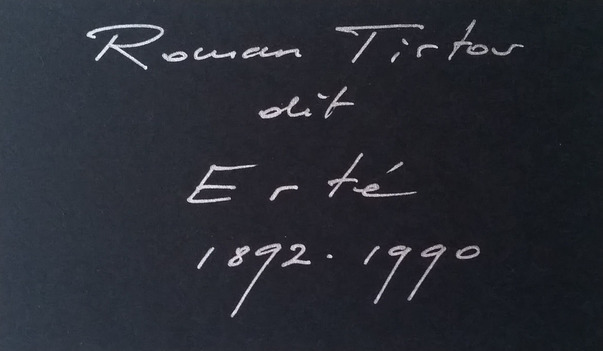 Roman Tirtov
dit
Erté
1892. 1990